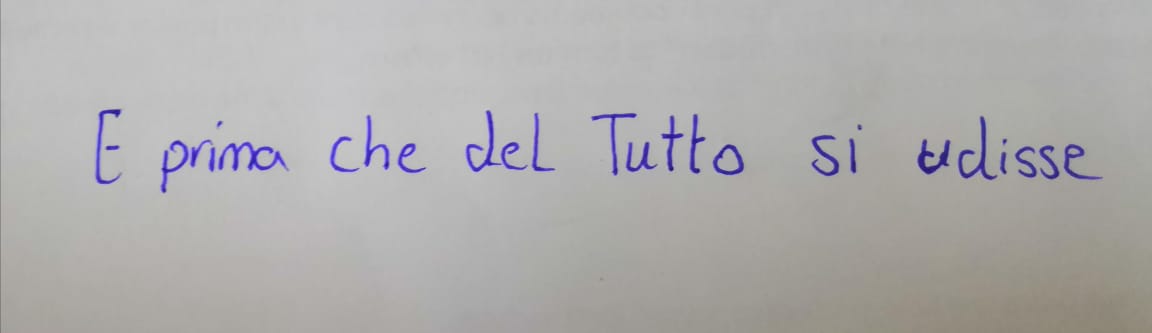 E prima che del Tutto si udisse